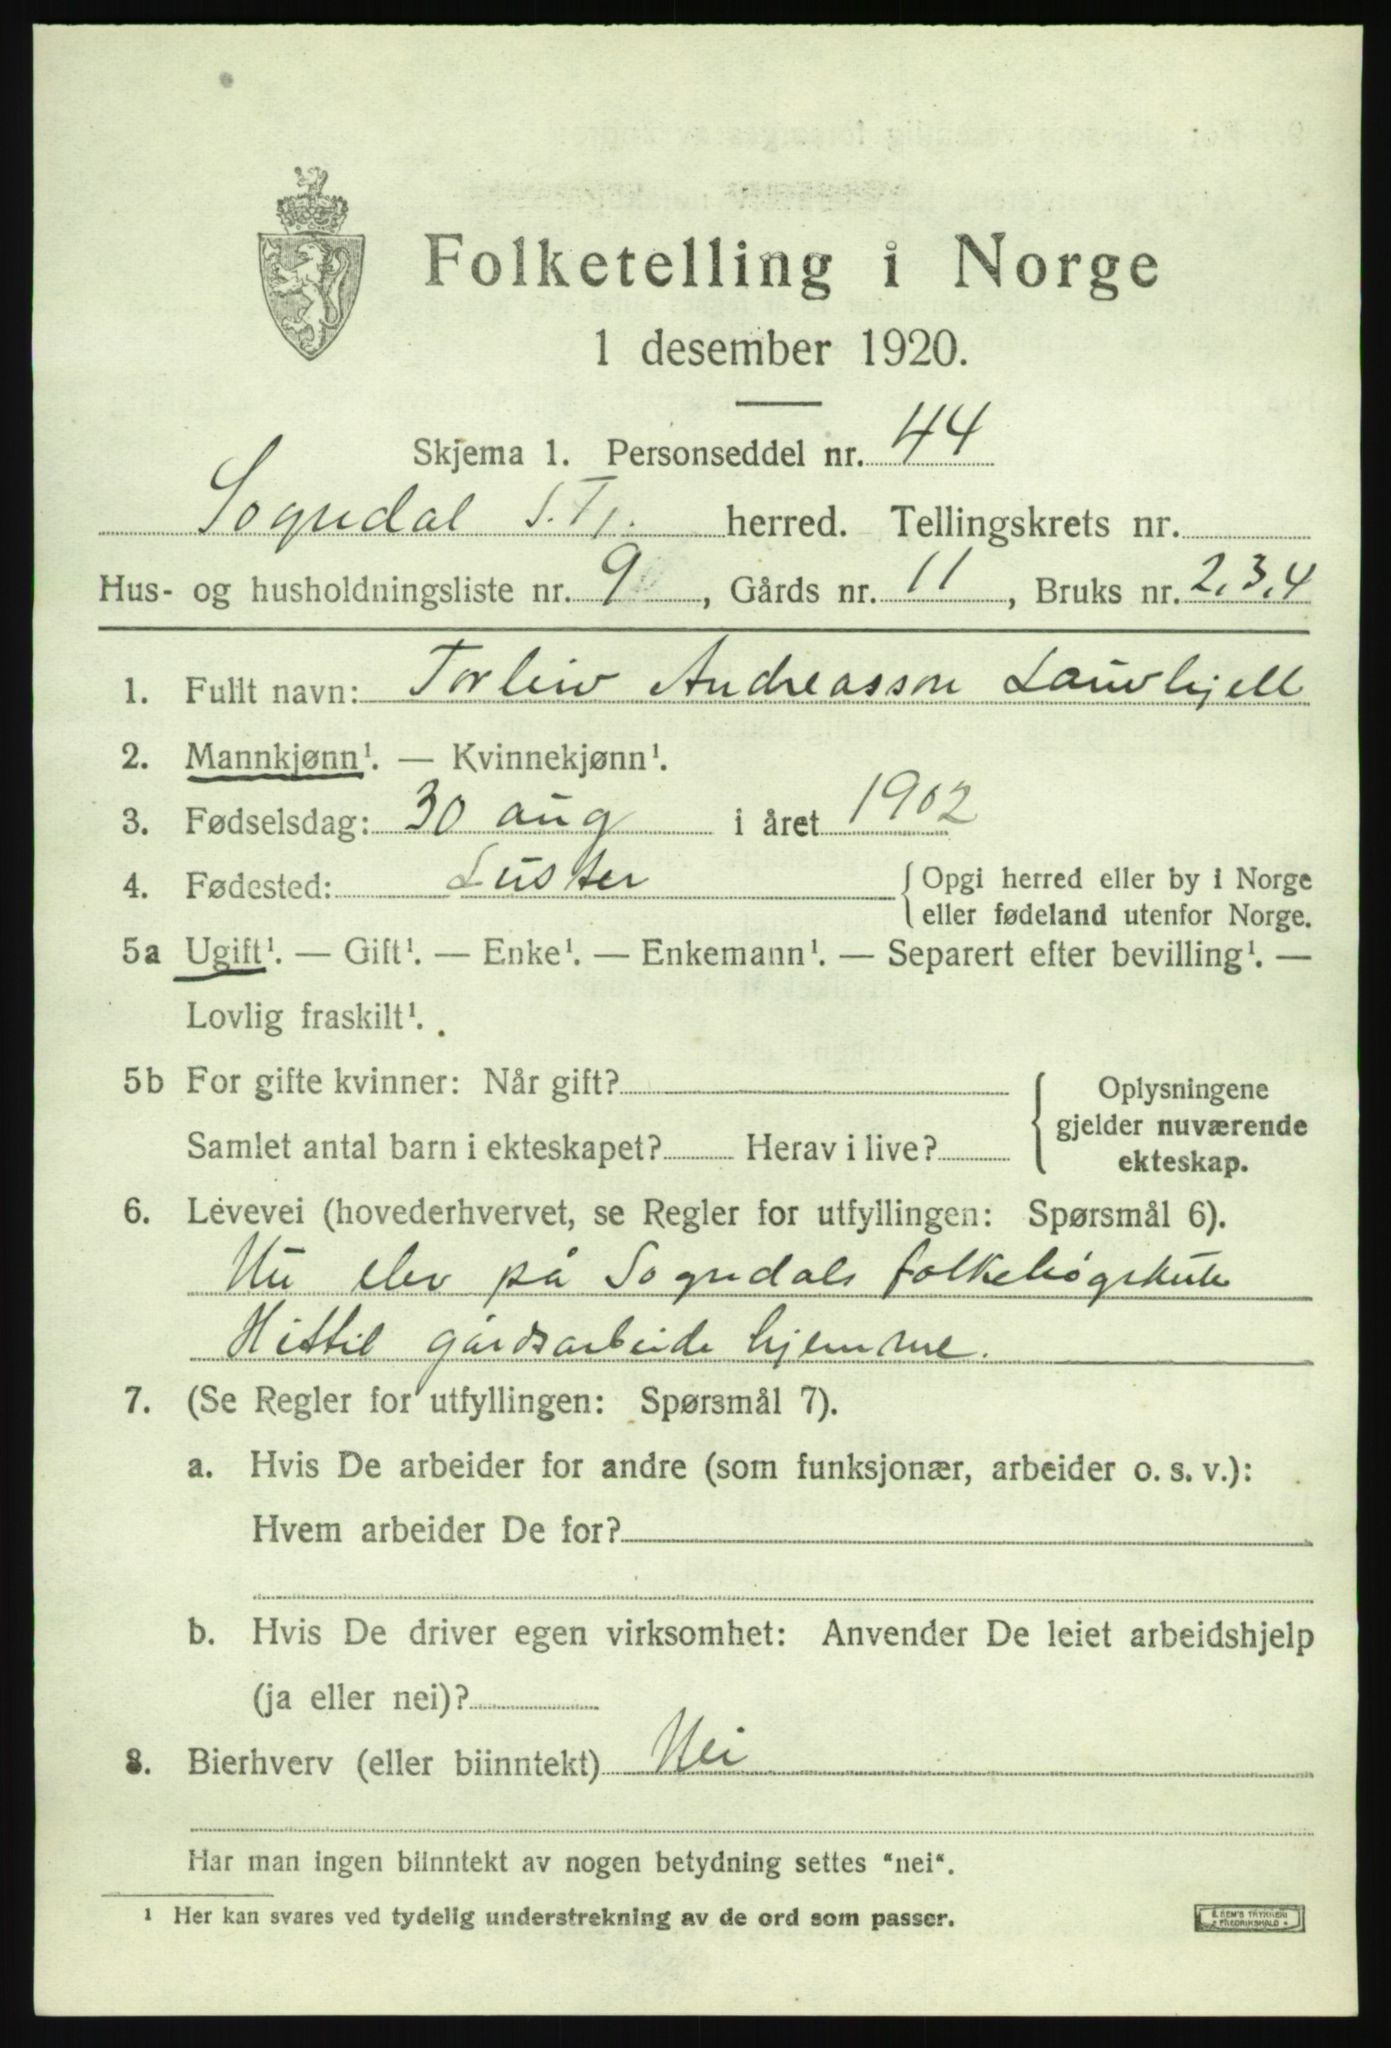 Folketelling i Norge
1 desember 1920.
Skjema 1. Personseddel nr. 44
Sogndal herred. Tellingskrets nr.
Hus- og husholdningsliste nr. 9, Gårds nr. 11, Bruks nr. 2, 3, 4
1. Fullt navn: Torleiv Andreasson Lauvhjell
2. Mannkjønn¹. — Kvinnekjønn¹.
3. Fødselsdag: 30 aug i året 1902
4. Fødested: Luster { Opgi herred eller by i Norge
eller fødeland utenfor Norge.
5a Ugift¹. — Gift¹. — Enke¹. — Enkemann¹. — Separert efter bevilling¹. —
Lovlig fraskilt¹.
5b For gifte kvinner: Når gift? { Oplysningene
gjelder nuværende
Samlet antal barn i ekteskapet? Herav i live?
ekteskap.
6. Levevei (hovederhvervet, se Regler for utfyllingen: Spørsmål 6).
Nu elev på Sogndals folkehøgskule
Hittil gårdsarbeide hjemme.
7. (Se Regler for utfyllingen: Spørsmål 7).
a. Hvis De arbeider for andre (som funksjonær, arbeider o. s. v.):
Hvem arbeider De for?
b. Hvis De driver egen virksomhet: Anvender De leiet arbeidshjelp
(ja eller nei)?
8. Bierhverv (eller biinntekt) Nei
Har man ingen biinntekt av nogen betydning settes "nei".
¹ Her kan svares ved tydelig understrekning av de ord som passer.